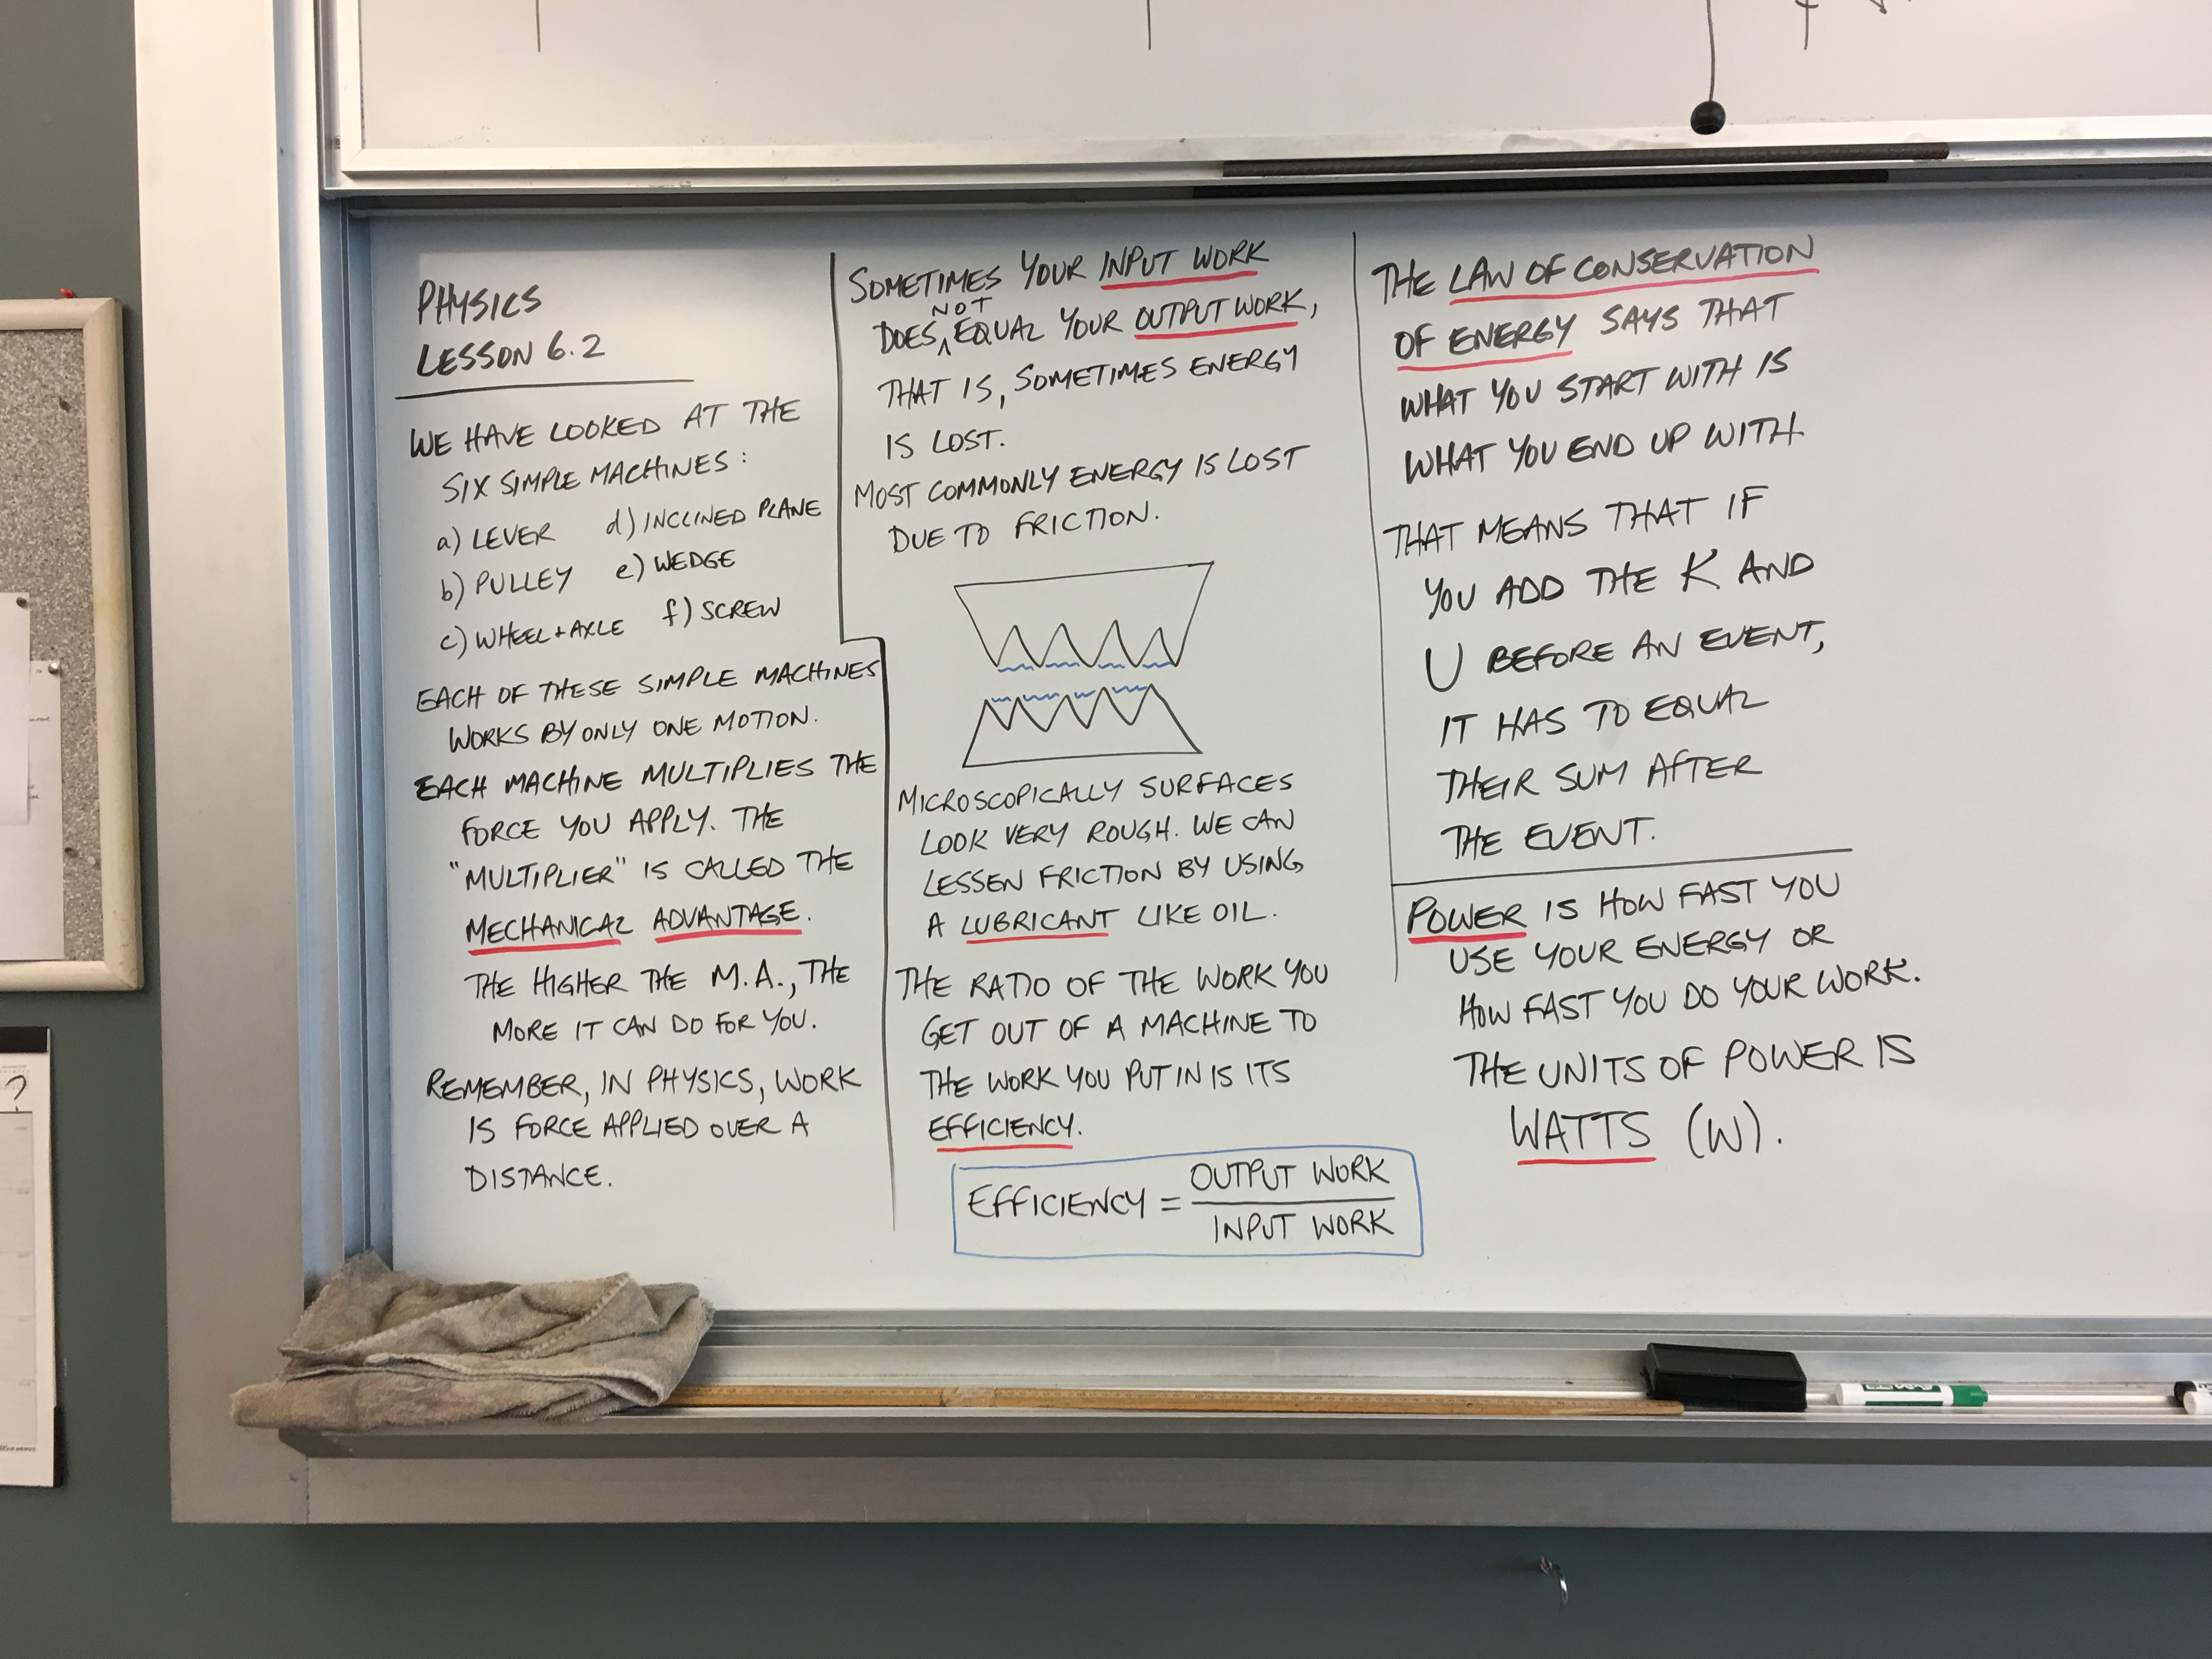 PHYSICS
LESSON 6.2
WE HAVE LOOKED AT THE
SIX SIMPLE MACHINES:
a) LEVER d) INCLINED PLANE
b) PULLEY e) WEDGE
c) WHEEL + AXLE f) SCREW
EACH OF THESE SIMPLE MACHINES
WORKS BY ONLY ONE MOTION.
EACH MACHINE MULTIPLIES THE
FORCE YOU APPLY. THE
"MULTIPLIER" IS CALLED THE
MECHANICAL ADVANTAGE.
THE HIGHER THE M.A., THE
MORE IT CAN DO FOR YOU.
REMEMBER, IN PHYSICS, WORK
IS FORCE APPLIED OVER A
DISTANCE.
SOMETIMES YOUR INPUT WORK
DOES NOT EQUAL YOUR OUTPUT WORK,
THAT IS, SOMETIMES ENERGY
IS LOST.
MOST COMMONLY ENERGY IS LOST
DUE TO FRICTION.
MICROSCOPICALLY SURFACES
LOOK VERY ROUGH. WE CAN
LESSEN FRICTION BY USING
A LUBRICANT LIKE OIL.
THE RATIO OF THE WORK YOU
GET OUT OF A MACHINE TO
THE WORK YOU PUT IN IS ITS
EFFICIENCY.
EFFICIENCY = OUTPUT WORK
INPUT WORK
THE LAW OF CONSERVATION
OF ENERGY SAYS THAT
WHAT YOU START WITH IS
WHAT YOU END UP WITH.
THAT MEANS THAT IF
YOU ADD THE K AND
U BEFORE AN EVENT,
IT HAS TO EQUAL
THEIR SUM AFTER
THE EVENT.
POWER IS HOW FAST YOU
USE YOUR ENERGY OR
HOW FAST YOU DO YOUR WORK.
THE UNITS OF POWER IS
WATTS (W).
?